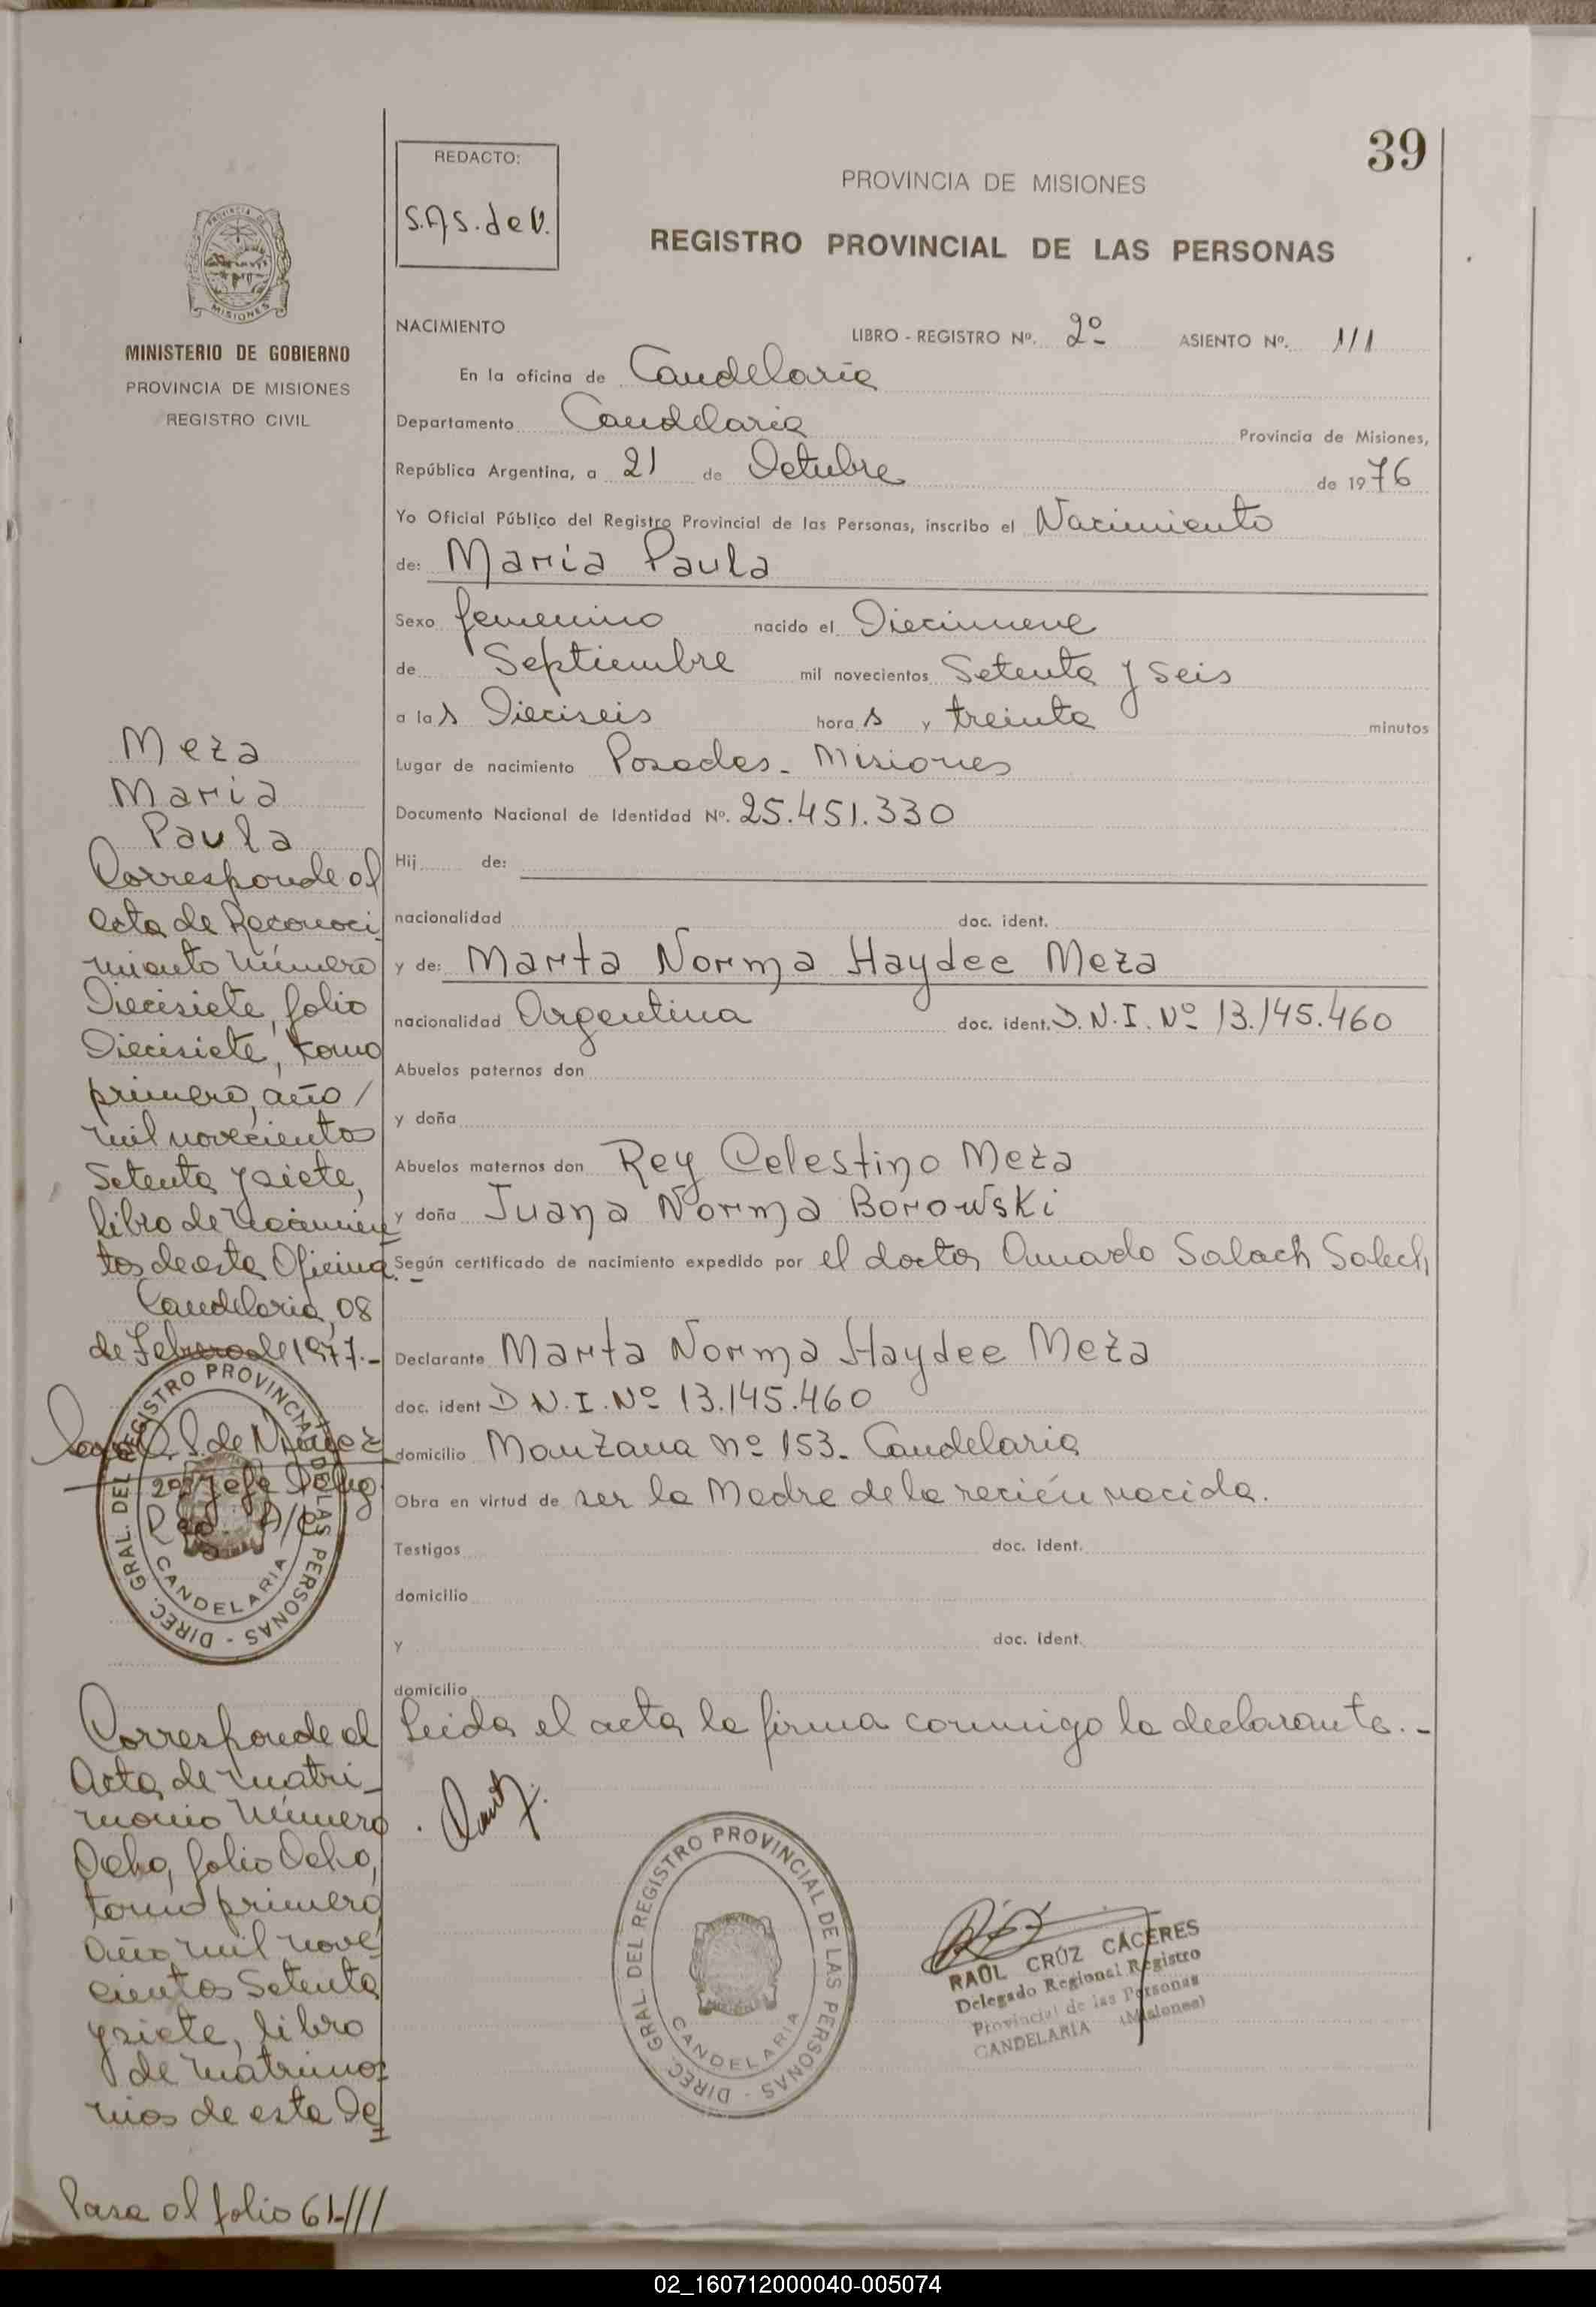 39
REDACTO:
S.A.S. de V.
PROVINCIA DE MISIONES
REGISTRO PROVINCIAL DE LAS PERSONAS
PROVINCIA DE
MISIONES
MINISTERIO DE GOBIERNO
PROVINCIA DE MISIONES
REGISTRO CIVIL
NACIMIENTO LIBRO - REGISTRO Nº. 2º ASIENTO Nº. 111
En la oficina de Candelaria
Departamento Candelaria Provincia de Misiones,
República Argentina, a 21 de Octubre de 1976
Yo Oficial Público del Registro Provincial de las Personas, inscribo el Nacimiento
de: Maria Paula
Sexo femenino nacido el Diecinueve
de Septiembre mil novecientos Setenta y seis
a las Dieciseis horas y treinta minutos
Lugar de nacimiento Posadas - Misiones
Documento Nacional de Identidad Nº. 25.451.330
Hij de:
nacionalidad doc. ident.
y de: Marta Norma Haydee Meza
nacionalidad Argentina doc. ident. D.N.I. Nº 13.145.460
Abuelos paternos don
y doña
Abuelos maternos don Rey Celestino Meza
y doña Juana Norma Borowski
Según certificado de nacimiento expedido por el doctor Salach Salech
Declarante Marta Norma Haydee Meza
doc. ident D.N.I. Nº 13.145.460
domicilio Manzana nº 153 - Candelaria
Obra en virtud de ser la Madre de la recién nacida.
Testigos doc. Ident.
domicilio
y doc. Ident.
domicilio
Leida el acta, la firma conmigo la declarante.-
DIREC. GRAL. DEL REGISTRO PROVINCIAL DE LAS PERSONAS -
CANDELARIA
RAÚL CRÚZ CÁCERES
Delegado Regional Registro
Provincial de las Personas
CANDELARIA (Misiones)
Meza
Maria
Paula
Corresponde al
acta de Reconoci-
miento número
Diecisiete, folio
Diecisiete, tomo
primero, año /
mil novecientos
Setenta y siete,
libro de nacimien
tos de esta Oficina.
Candelaria, 08
de Febrero de 1977.-
de Nuñez
2º Jefe Deleg
Reg. A/C
DIREC. GRAL. DEL REGISTRO PROVINCIAL DE LAS PERSONAS -
CANDELARIA
Corresponde al
Acta de matri-
monio número
Ocho, folio Ocho,
tomo primero,
año mil nove
cientos Setenta
y siete, libro
de matrimo-
nios de esta De
Pasa al folio 61-///
02_160712000040-005074